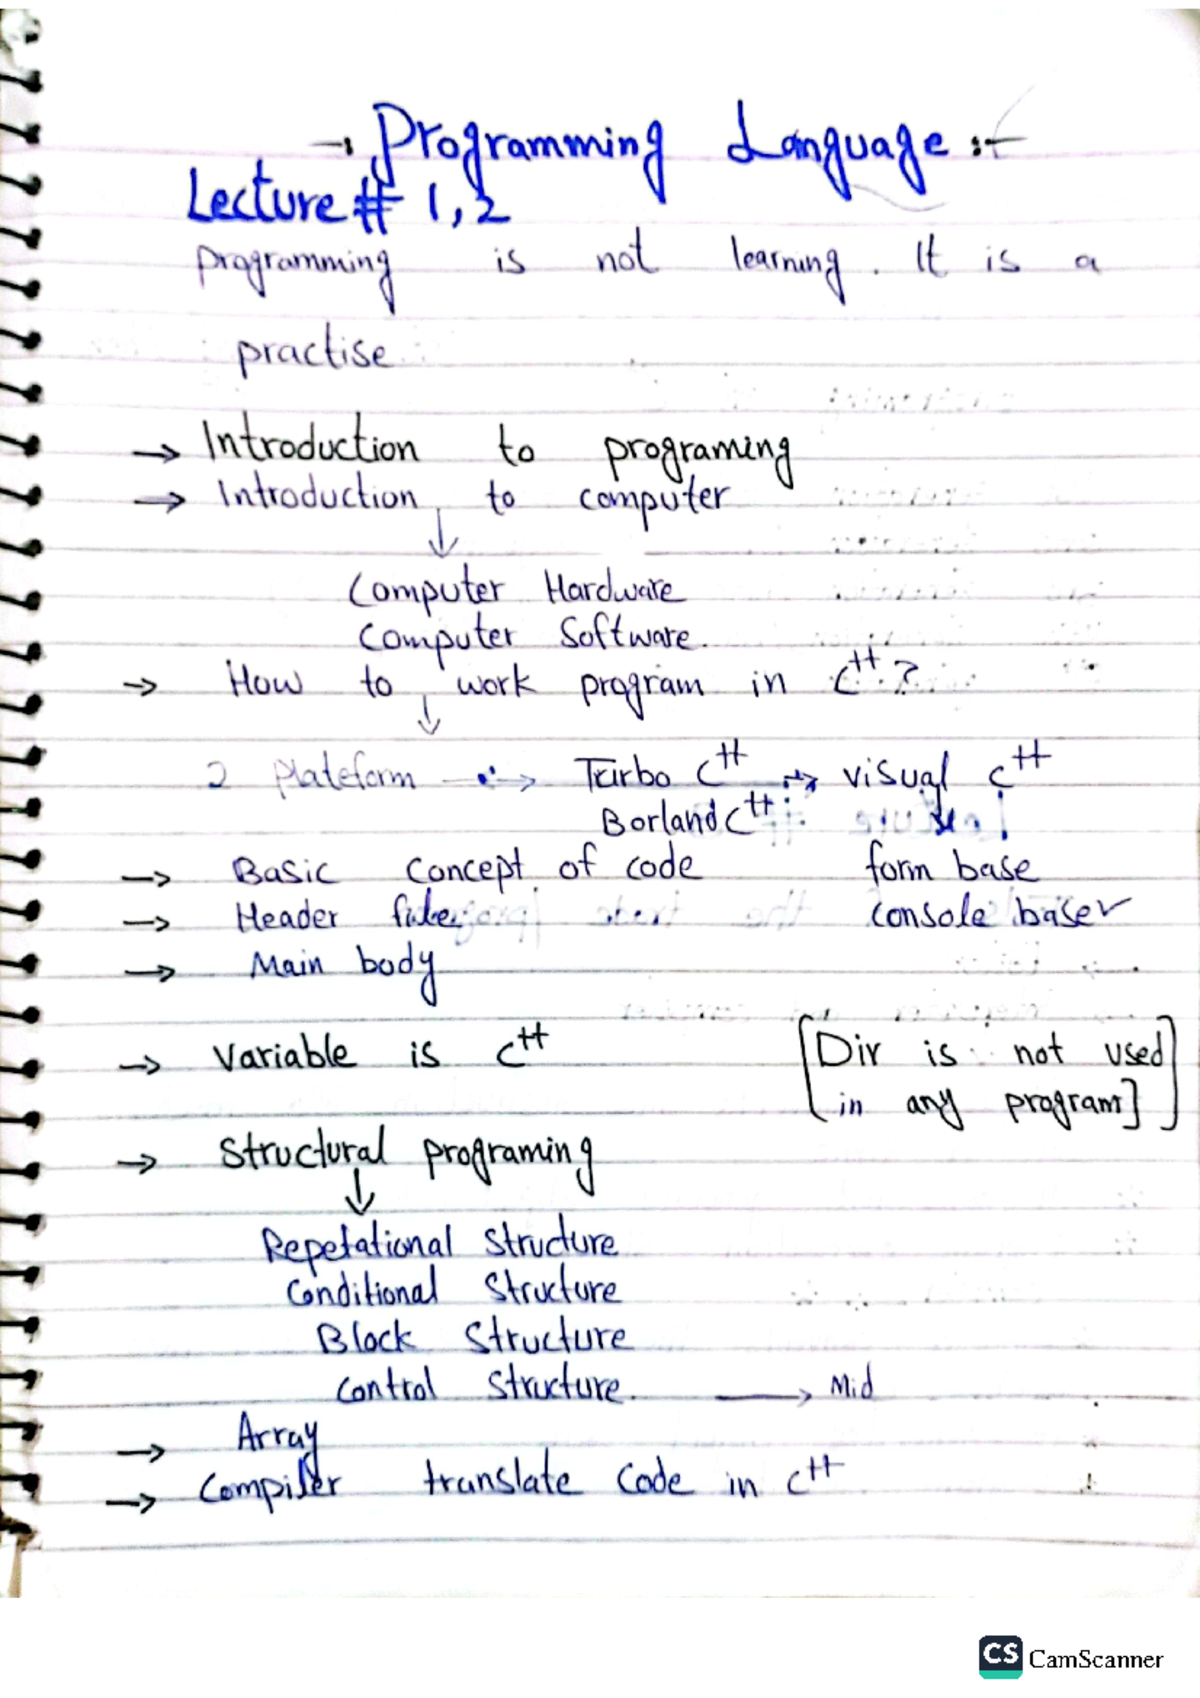 -: Programming Language :-
Lecture # 1,2
programming is not learning. It is a
practise
→ Introduction to programing
→ Introduction to computer
↓
Computer Hardware
Computer Software.
→ How to work program in C++?
↓
2 Plateform → Turbo C++ → visual C++
Borland C++ ↓
→ Basic Concept of code form base
→ Header console base ✓
→ Main body
→ Variable is C++ [Dir is not used
in any program]
→ Structural programing
↓
Repetational Structure
Conditional Structure
Block Structure
Control Structure. → Mid
→ Array
→ Compiler translate Code in C++
CS CamScanner